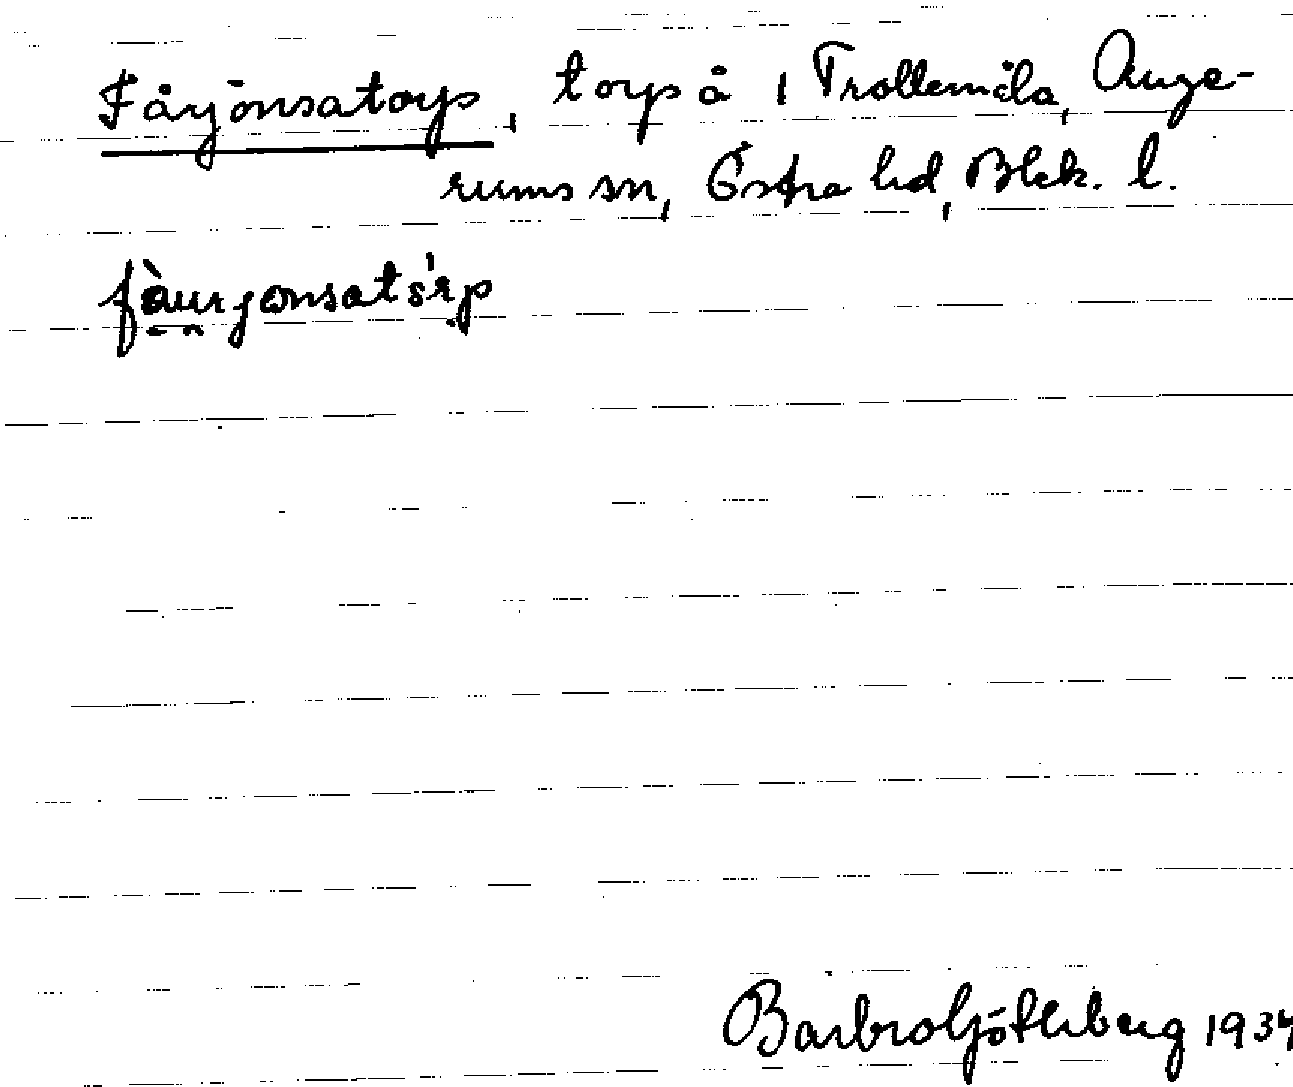 Fårjönsatorp, torp å 1 Trollemåla, Auge-
rums sn, Östra hd, Blek. l.
Barbro Götherberg 1934